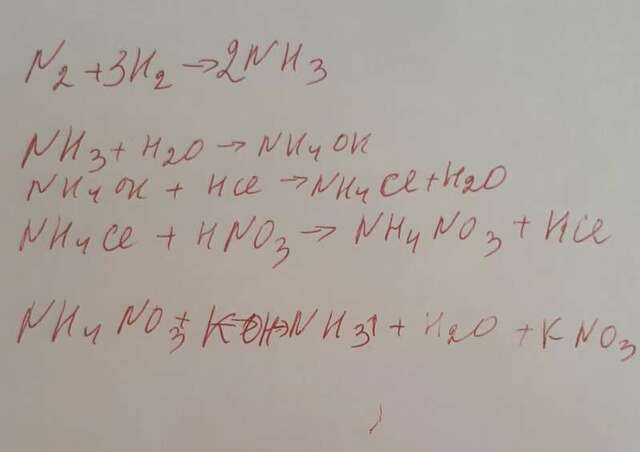 N₂ + 3H₂ → 2NH₃
NH₃ + H₂O → NH₄OH
NH₄OH + HCl → NH₄Cl + H₂O
NH₄Cl + HNO₃ → NH₄NO₃ + HCl
NH₄NO₃ + KOH → NH₃↑ + H₂O + KNO₃